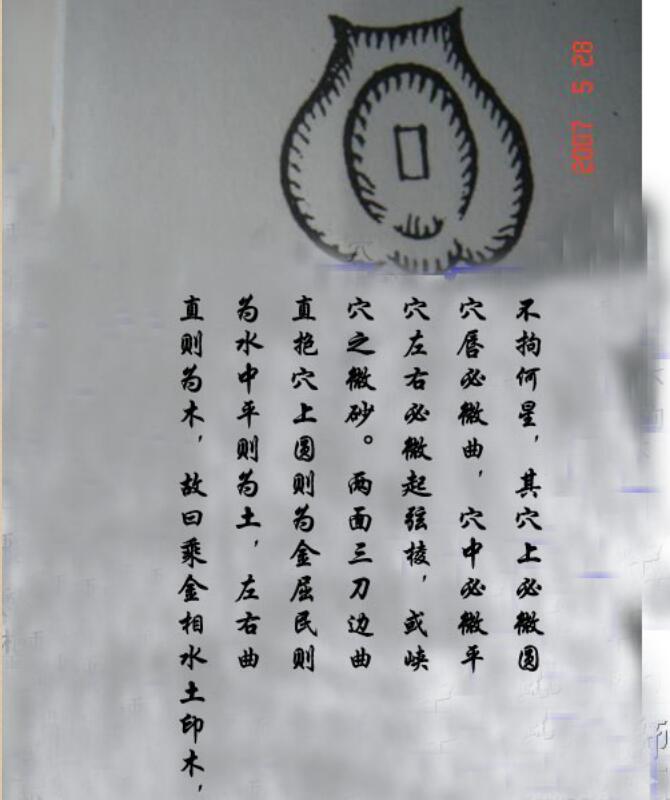 2007 5 28
不拘何星，其穴上必微圆
穴唇必微曲，穴中必微平
穴左右必微起弦棱，或峡
穴之微砂。两面三刀边曲
直抱穴上圆则为金屈民则
为水中平则为土，左右曲
直则为木，故曰乘金相水土印木，